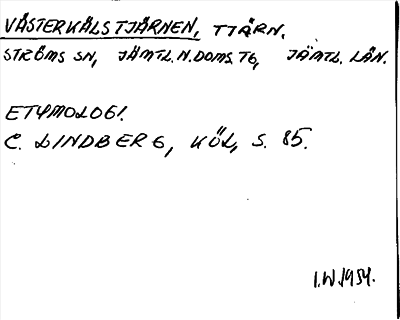 VÄSTERKÄLSTJÄRNEN, TJÄRN.
STRÖMS SN, JÄMTL. N. DOMS. TG, JÄMTL. LÄN.
ETYMOLOGI.
C. LINDBERG, KÖL, S. 85.
I.W.1954.